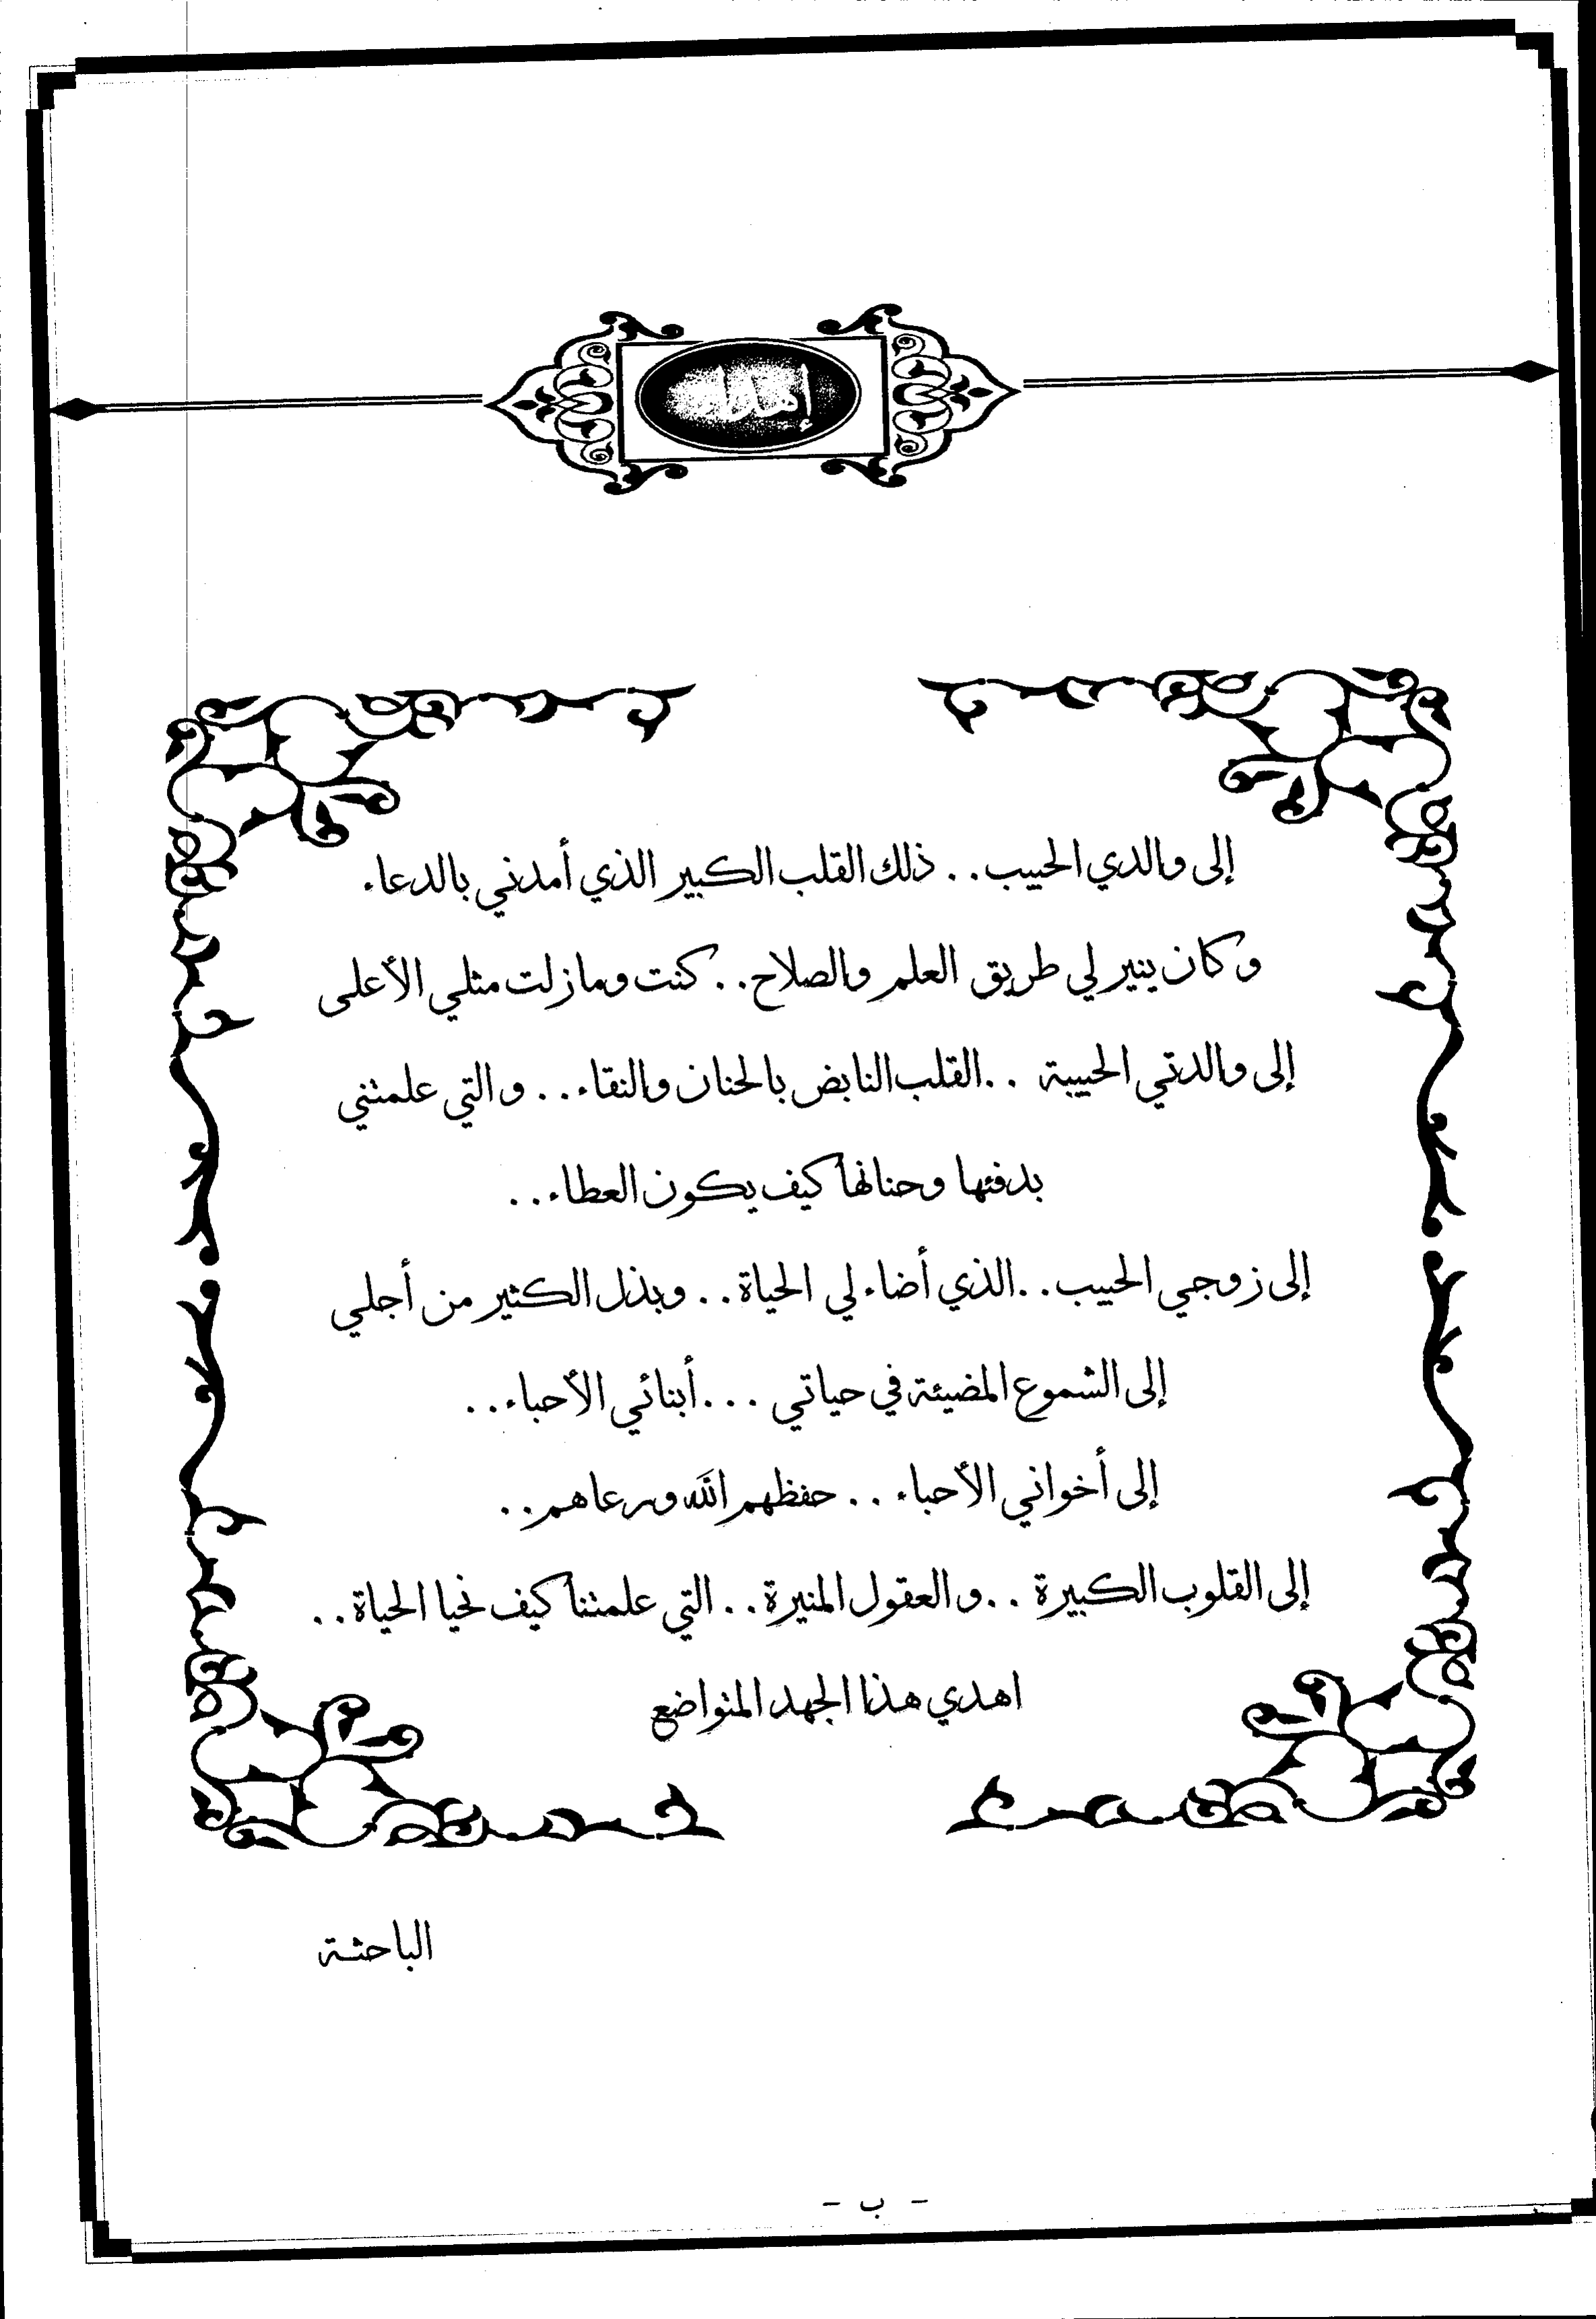 إهداء
إلى والدي الحبيب.. ذلك القلب الكبير الذي أمدني بالدعاء
وكان ينير لي طريق العلم والصلاح.. كنت ومازلت مثلي الأعلى
إلى والدتي الحبيبة ..القلب النابض بالحنان والنقاء.. والتي علمتني
بدفئها وحنانها كيف يكون العطاء..
إلى زوجي الحبيب..الذي أضاء لي الحياة.. وبذل الكثير من أجلي
إلى الشموع المضيئة في حياتي ...أبنائي الأحباء..
إلى أخواني الأحباء .. حفظهم الله ورعاهم..
إلى القلوب الكبيرة ..والعقول المنيرة.. التي علمتنا كيف نحيا الحياة..
اهدي هذا الجهد المتواضع
الباحثة
- ب -